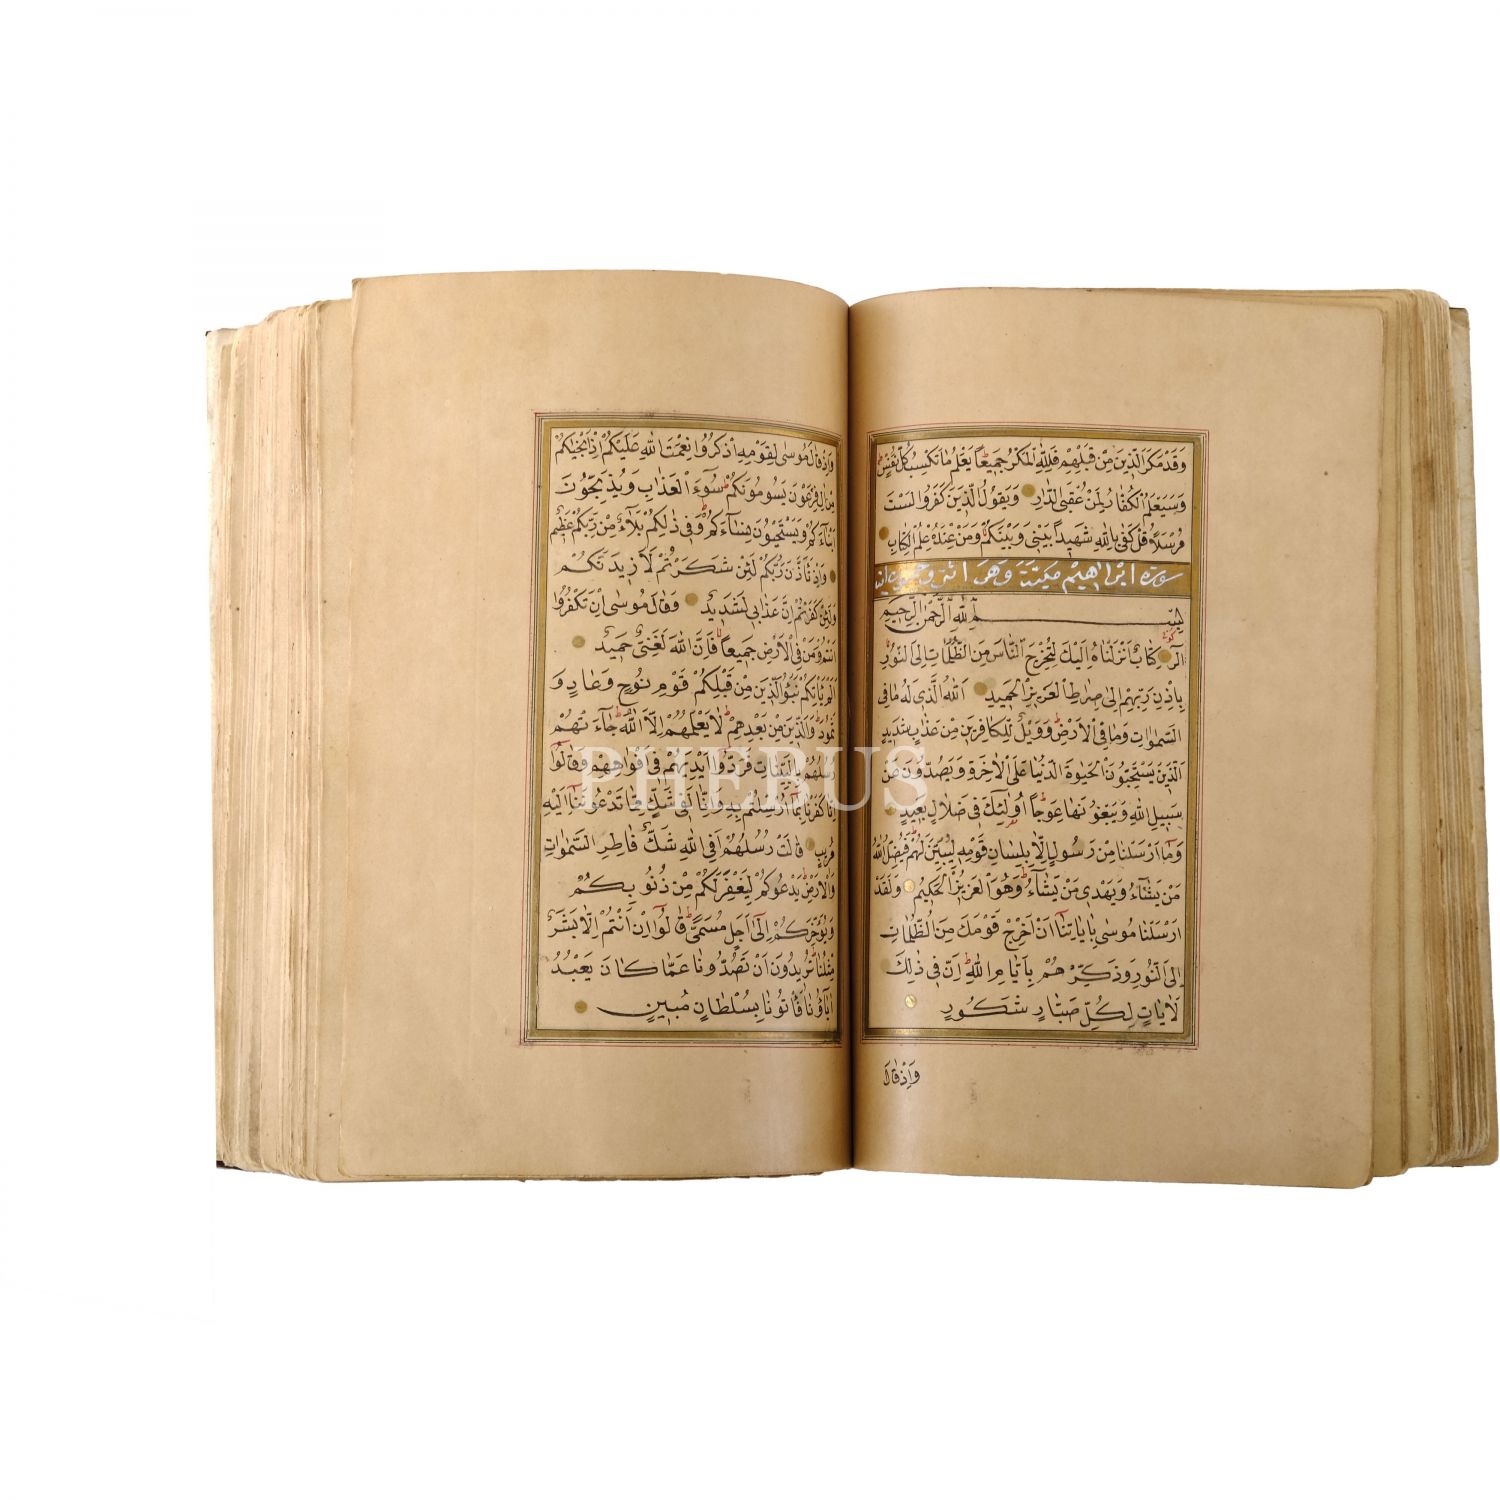 وَقَدْ مَكَرَ الَّذِينَ مِنْ قَبْلِهِمْ فَلِلّٰهِ الْمَكْرُ جَمِيعًا يَعْلَمُ مَا تَكْسِبُ كُلُّ نَفْسٍ
وَسَيَعْلَمُ الْكُفَّارُ لِمَنْ عُقْبَى الدَّارِ وَيَقُولُ الَّذِينَ كَفَرُوا لَسْتَ
مُرْسَلًا قُلْ كَفٰى بِاللّٰهِ شَهِيدًا بَيْنِي وَبَيْنَكُمْ وَمَنْ عِنْدَهُ عِلْمُ الْكِتَابِ
سورة ابراهيم مكية وهى
بِسْمِ اللّٰهِ الرَّحْمٰنِ الرَّحِيمِ
الٓرٰ كِتَابٌ اَنْزَلْنَاهُ اِلَيْكَ لِتُخْرِجَ النَّاسَ مِنَ الظُّلُمَاتِ اِلَى النُّورِ
بِاِذْنِ رَبِّهِمْ اِلٰى صِرَاطِ الْعَزِيزِ الْحَمِيدِ اَللّٰهُ الَّذِي لَهُ مَا فِي
السَّمٰوَاتِ وَمَا فِي الْاَرْضِ وَوَيْلٌ لِلْكَافِرِينَ مِنْ عَذَابٍ شَدِيدٍ
اَلَّذِينَ يَسْتَحِبُّونَ الْحَيٰوةَ الدُّنْيَا عَلَى الْاٰخِرَةِ وَيَصُدُّونَ عَنْ
سَبِيلِ اللّٰهِ وَيَبْغُونَهَا عِوَجًا اُولٰئِكَ فِي ضَلَالٍ بَعِيدٍ
وَمَا اَرْسَلْنَا مِنْ رَسُولٍ اِلَّا بِلِسَانِ قَوْمِهِ لِيُبَيِّنَ لَهُمْ فَيُضِلُّ اللّٰهُ
مَنْ يَشَاءُ وَيَهْدِي مَنْ يَشَاءُ وَهُوَ الْعَزِيزُ الْحَكِيمُ وَلَقَدْ
اَرْسَلْنَا مُوسٰى بِاٰيَاتِنَا اَنْ اَخْرِجْ قَوْمَكَ مِنَ الظُّلُمَاتِ
اِلَى النُّورِ وَذَكِّرْهُمْ بِاَيَّامِ اللّٰهِ اِنَّ فِي ذٰلِكَ
لَاٰيَاتٍ لِكُلِّ صَبَّارٍ شَكُورٍ
وَاِذْ قَالَ
وَاِذْ قَالَ مُوسٰى لِقَوْمِهِ اذْكُرُوا نِعْمَتَ اللّٰهِ عَلَيْكُمْ اِذْ اَنْجٰيكُمْ
مِنْ اٰلِ فِرْعَوْنَ يَسُومُونَكُمْ سُوءَ الْعَذَابِ وَيُذَبِّحُونَ
اَبْنَاءَكُمْ وَيَسْتَحْيُونَ نِسَاءَكُمْ وَفِي ذٰلِكُمْ بَلَاءٌ مِنْ رَبِّكُمْ عَظِيمٌ
وَاِذْ تَاَذَّنَ رَبُّكُمْ لَئِنْ شَكَرْتُمْ لَاَزِيدَنَّكُمْ
وَلَئِنْ كَفَرْتُمْ اِنَّ عَذَابِي لَشَدِيدٌ وَقَالَ مُوسٰى اِنْ تَكْفُرُوا
اَنْتُمْ وَمَنْ فِي الْاَرْضِ جَمِيعًا فَاِنَّ اللّٰهَ لَغَنِيٌّ حَمِيدٌ
اَلَمْ يَاْتِكُمْ نَبَؤُا الَّذِينَ مِنْ قَبْلِكُمْ قَوْمِ نُوحٍ وَعَادٍ وَ
ثَمُودَ وَالَّذِينَ مِنْ بَعْدِهِمْ لَا يَعْلَمُهُمْ اِلَّا اللّٰهُ جَاءَتْهُمْ
رُسُلُهُمْ بِالْبَيِّنَاتِ فَرَدُّوا اَيْدِيَهُمْ فِي اَفْوَاهِهِمْ وَقَالُوا
اِنَّا كَفَرْنَا بِمَا اُرْسِلْتُمْ بِهِ وَاِنَّا لَفِي شَكٍّ مِمَّا تَدْعُونَنَا اِلَيْهِ
مُرِيبٍ قَالَتْ رُسُلُهُمْ اَفِي اللّٰهِ شَكٌّ فَاطِرِ السَّمٰوَاتِ
وَالْاَرْضِ يَدْعُوكُمْ لِيَغْفِرَ لَكُمْ مِنْ ذُنُوبِكُمْ
وَيُؤَخِّرَكُمْ اِلٰى اَجَلٍ مُسَمًّى قَالُوا اِنْ اَنْتُمْ اِلَّا بَشَرٌ
مِثْلُنَا تُرِيدُونَ اَنْ تَصُدُّونَا عَمَّا كَانَ يَعْبُدُ
اٰبَاؤُنَا فَاْتُونَا بِسُلْطَانٍ مُبِينٍ
PHEBUS